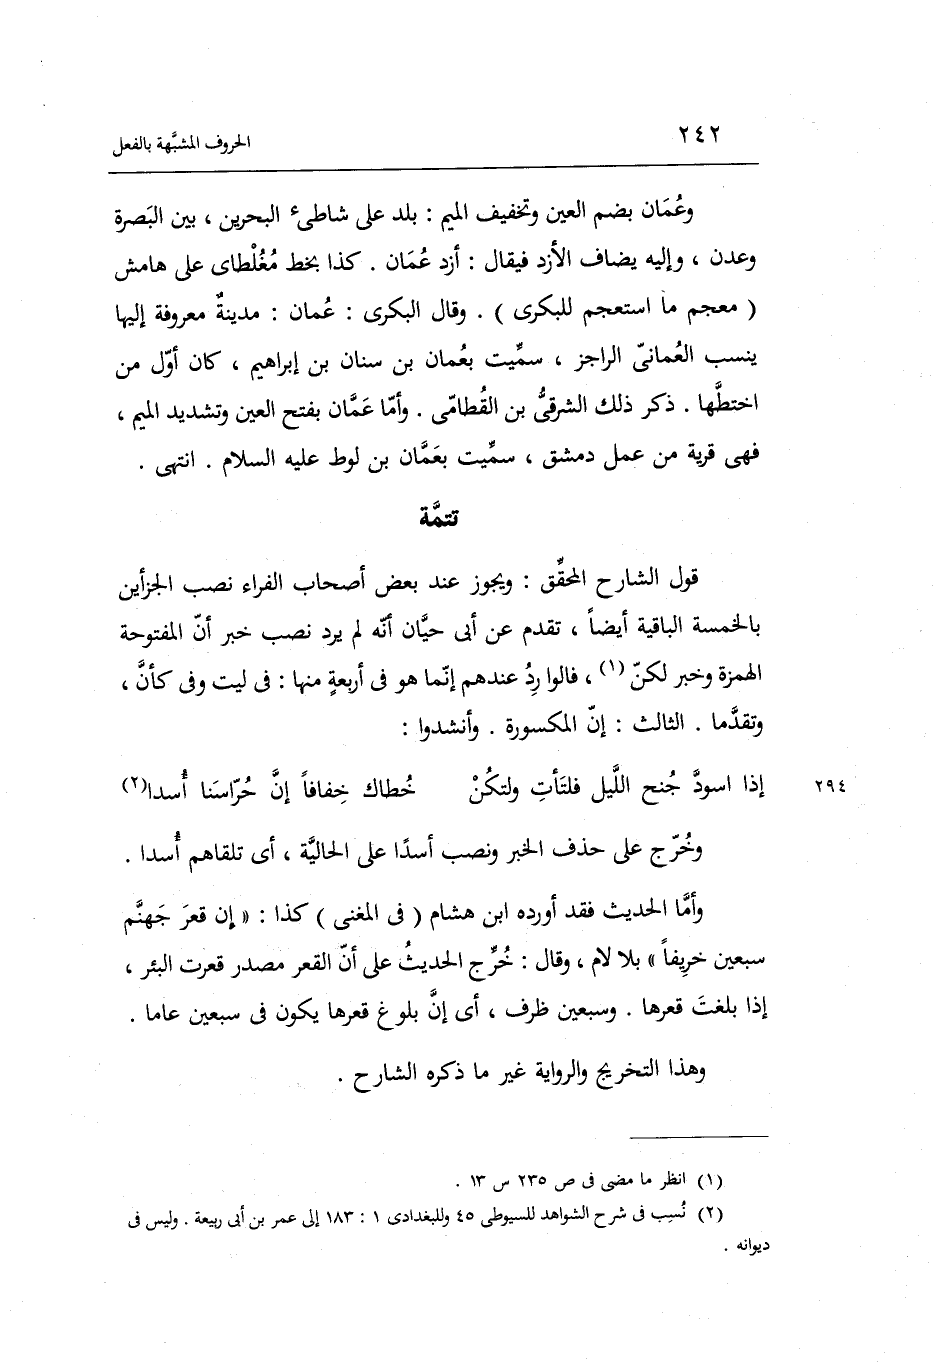 ٢٤٢ الحروف المشبَّهة بالفعل
وعُمَان بضم العين وتخفيف الميم : بلد على شاطىء البحرين ، بين البَصرة
وعدن ، وإليه يضاف الأزد فيقال : أزد عُمَان . كذا بخط مُغُلْطاى على هامش
( معجم ما استعجم للبكرى ) . وقال البكرى : عُمان : مدينةٌ معروفة إليها
ينسب العُمانىّ الراجز ، سمِّيت بعُمان بن سنان بن إبراهيم ، كان أوّل من
اختطَّها . ذكر ذلك الشرقىُّ بن القُطامّى . وأمّا عَمَّان بفتح العين وتشديد الميم ،
فهى قرية من عمل دمشق ، سمِّيت بعَمَّان بن لوط عليه السلام . انتهى .
تتمَّة
قول الشارح المحقِّق : ويجوز عند بعض أصحاب الفراء نصب الجزأين
بالخمسة الباقية أيضاً ، تقدم عن أبى حيَّان أنّه لم يرد نصب خبر أنّ المفتوحة
الهمزة وخبر لكنّ (١) ، فالوا رِدُ عندهم إنّما هو فى أربعةٍ منها : فى ليت وفى كأنَّ ،
وتقدَّما . الثالث : إنّ المكسورة . وأنشدوا :
٢٩٤ إذا اسودَّ جُنح اللَّيل فلتَأتِ ولتكُنْ خُطاك خِفافاً إنَّ حُرّاسَنا أُسدا(٢)
وخُرّج على حذف الخبر ونصب أسدًا على الحاليَّة ، أى تلقاهم أُسدا .
وأمَّا الحديث فقد أورده ابن هشام ( فى المغنى ) كذا : « إن قعرَ جَهنَّم
سبعين خريفاً » بلا لام ، وقال : خُرِّج الحديثُ على أنّ القعر مصدر قعرت البئر ،
إذا بلغتَ قعرها . وسبعين ظرف ، أى إنَّ بلوغ قعرها يكون فى سبعين عاما .
وهذا التخريج والرواية غير ما ذكره الشارح .
(١) انظر ما مضى فى ص ٢٣٥ س ١٣ .
(٢) نُسِب فى شرح الشواهد للسيوطى ٤٥ وللبغدادى ١ : ١٨٣ إلى عمر بن أبى ربيعة . وليس فى
ديوانه .